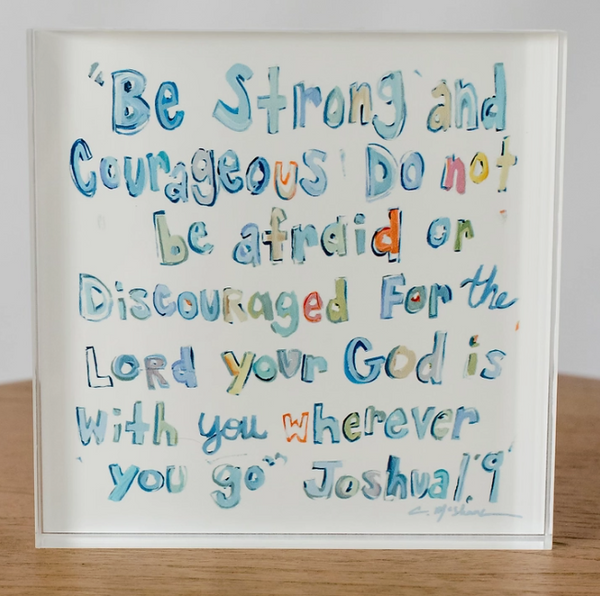 "Be Strong and
Courageous! Do not
be afraid or
Discouraged For the
Lord your God is
with you wherever
you go" Joshua 1:9